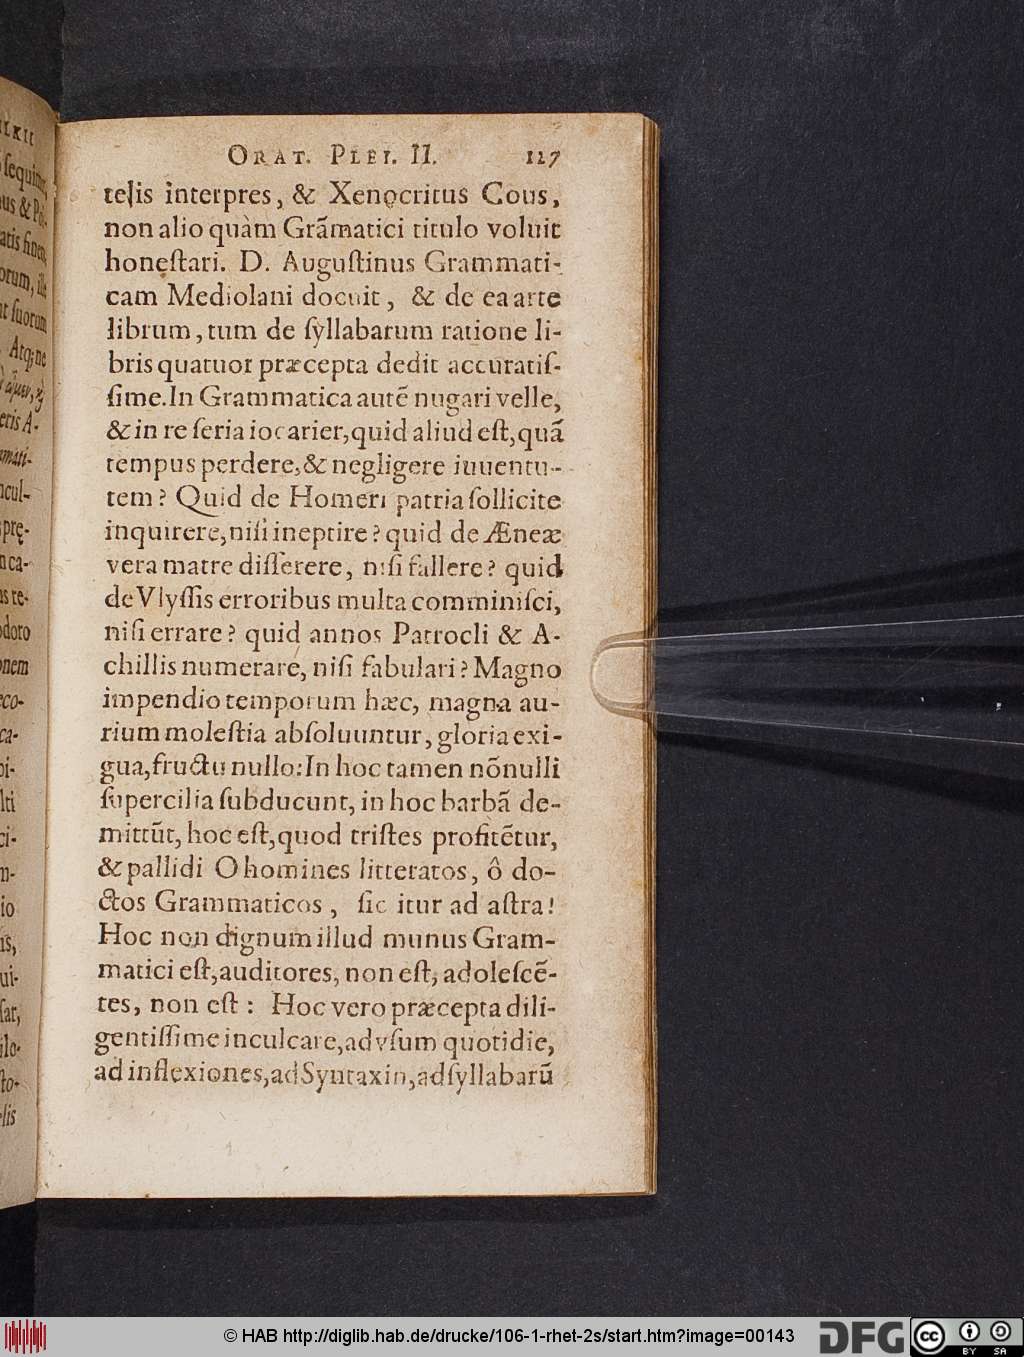 ORAT. PLEI. II. 127
telis interpres, & Xenocritus Cous,
non alio quàm Grãmatici titulo voluit
honeſtari. D. Auguſtinus Grammati-
cam Mediolani docuit, & de ea arte
librum, tum de ſyllabarum ratione li-
bris quatuor præcepta dedit accuratiſ-
ſime. In Grammatica autẽ nugari velle,
& in re ſeria iocarier, quid aliud eſt, quã
tempus perdere, & negligere iuuentu-
tem? Quid de Homeri patria ſollicite
inquirere, niſi ineptire? quid de Æneæ
vera matre diſſerere, niſi fallere? quid
de Vlyſſis erroribus multa comminiſci,
niſi errare? quid annos Patrocli & A-
chillis numerare, niſi fabulari? Magno
impendio temporum hæc, magna au-
rium moleſtia abſoluuntur, gloria exi-
gua, fructu nullo: In hoc tamen nõnulli
ſupercilia ſubducunt, in hoc barbã de-
mittũt, hoc eſt, quod triſtes profitẽtur,
& pallidi O homines litteratos, ô do-
ctos Grammaticos, ſic itur ad aſtra!
Hoc non dignum illud munus Gram-
matici eſt, auditores, non eſt, adoleſcẽ-
tes, non eſt: Hoc vero præcepta dili-
gentiſſime inculcare, ad vſum quotidie,
ad inflexiones, ad Syntaxin, ad ſyllabarũ
ſequimur
us & Pol-
atis fines
orum, ille
nt ſuorum
Atq; ne
eris A-
mati-
ncul-
prę-
nca-
us te-
odoro
onem
eco-
ca-
pi-
lti
ci-
n-
io
is,
ui-
ſar,
ilo-
ſto-
elis
© HAB http://diglib.hab.de/drucke/106-1-rhet-2s/start.htm?image=00143
DFG
cc BY SA